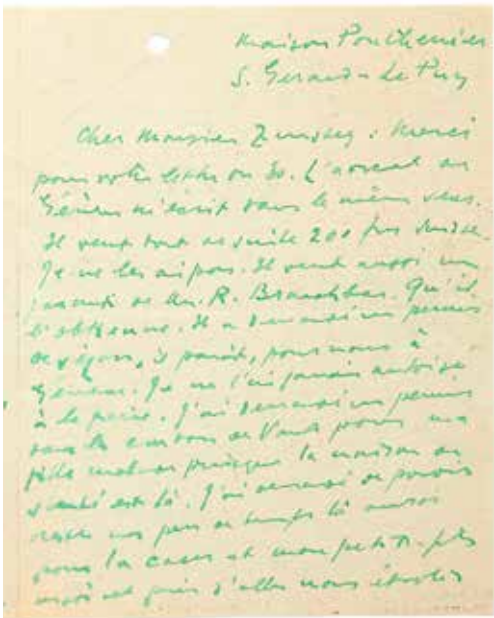 Maison Ponthenier
S. Gerand-Le Puy
Cher Monsieur Zumsteg : Merci
pour votre lettre du 30. L'avocat de
Genève m'écrit dans le même sens.
Il veut tout de suite 200 frs suisse.
Je ne les ai pas. Il veut aussi un
de M. R. Brauchbar. Qu'il
l'obtienne. Il a demandé un permis
de séjour, il paraît, pour nous à
Genève. Je ne l'ai jamais autorisé
à le faire. J'ai demandé un permis
dans le canton de Vaud pour ma
fille malade puisque la maison de
santé est là. J'ai demandé de pouvoir
rester un peu de temps là aussi
pour la caser et mon petit-fils
aussi et puis d'aller nous établir